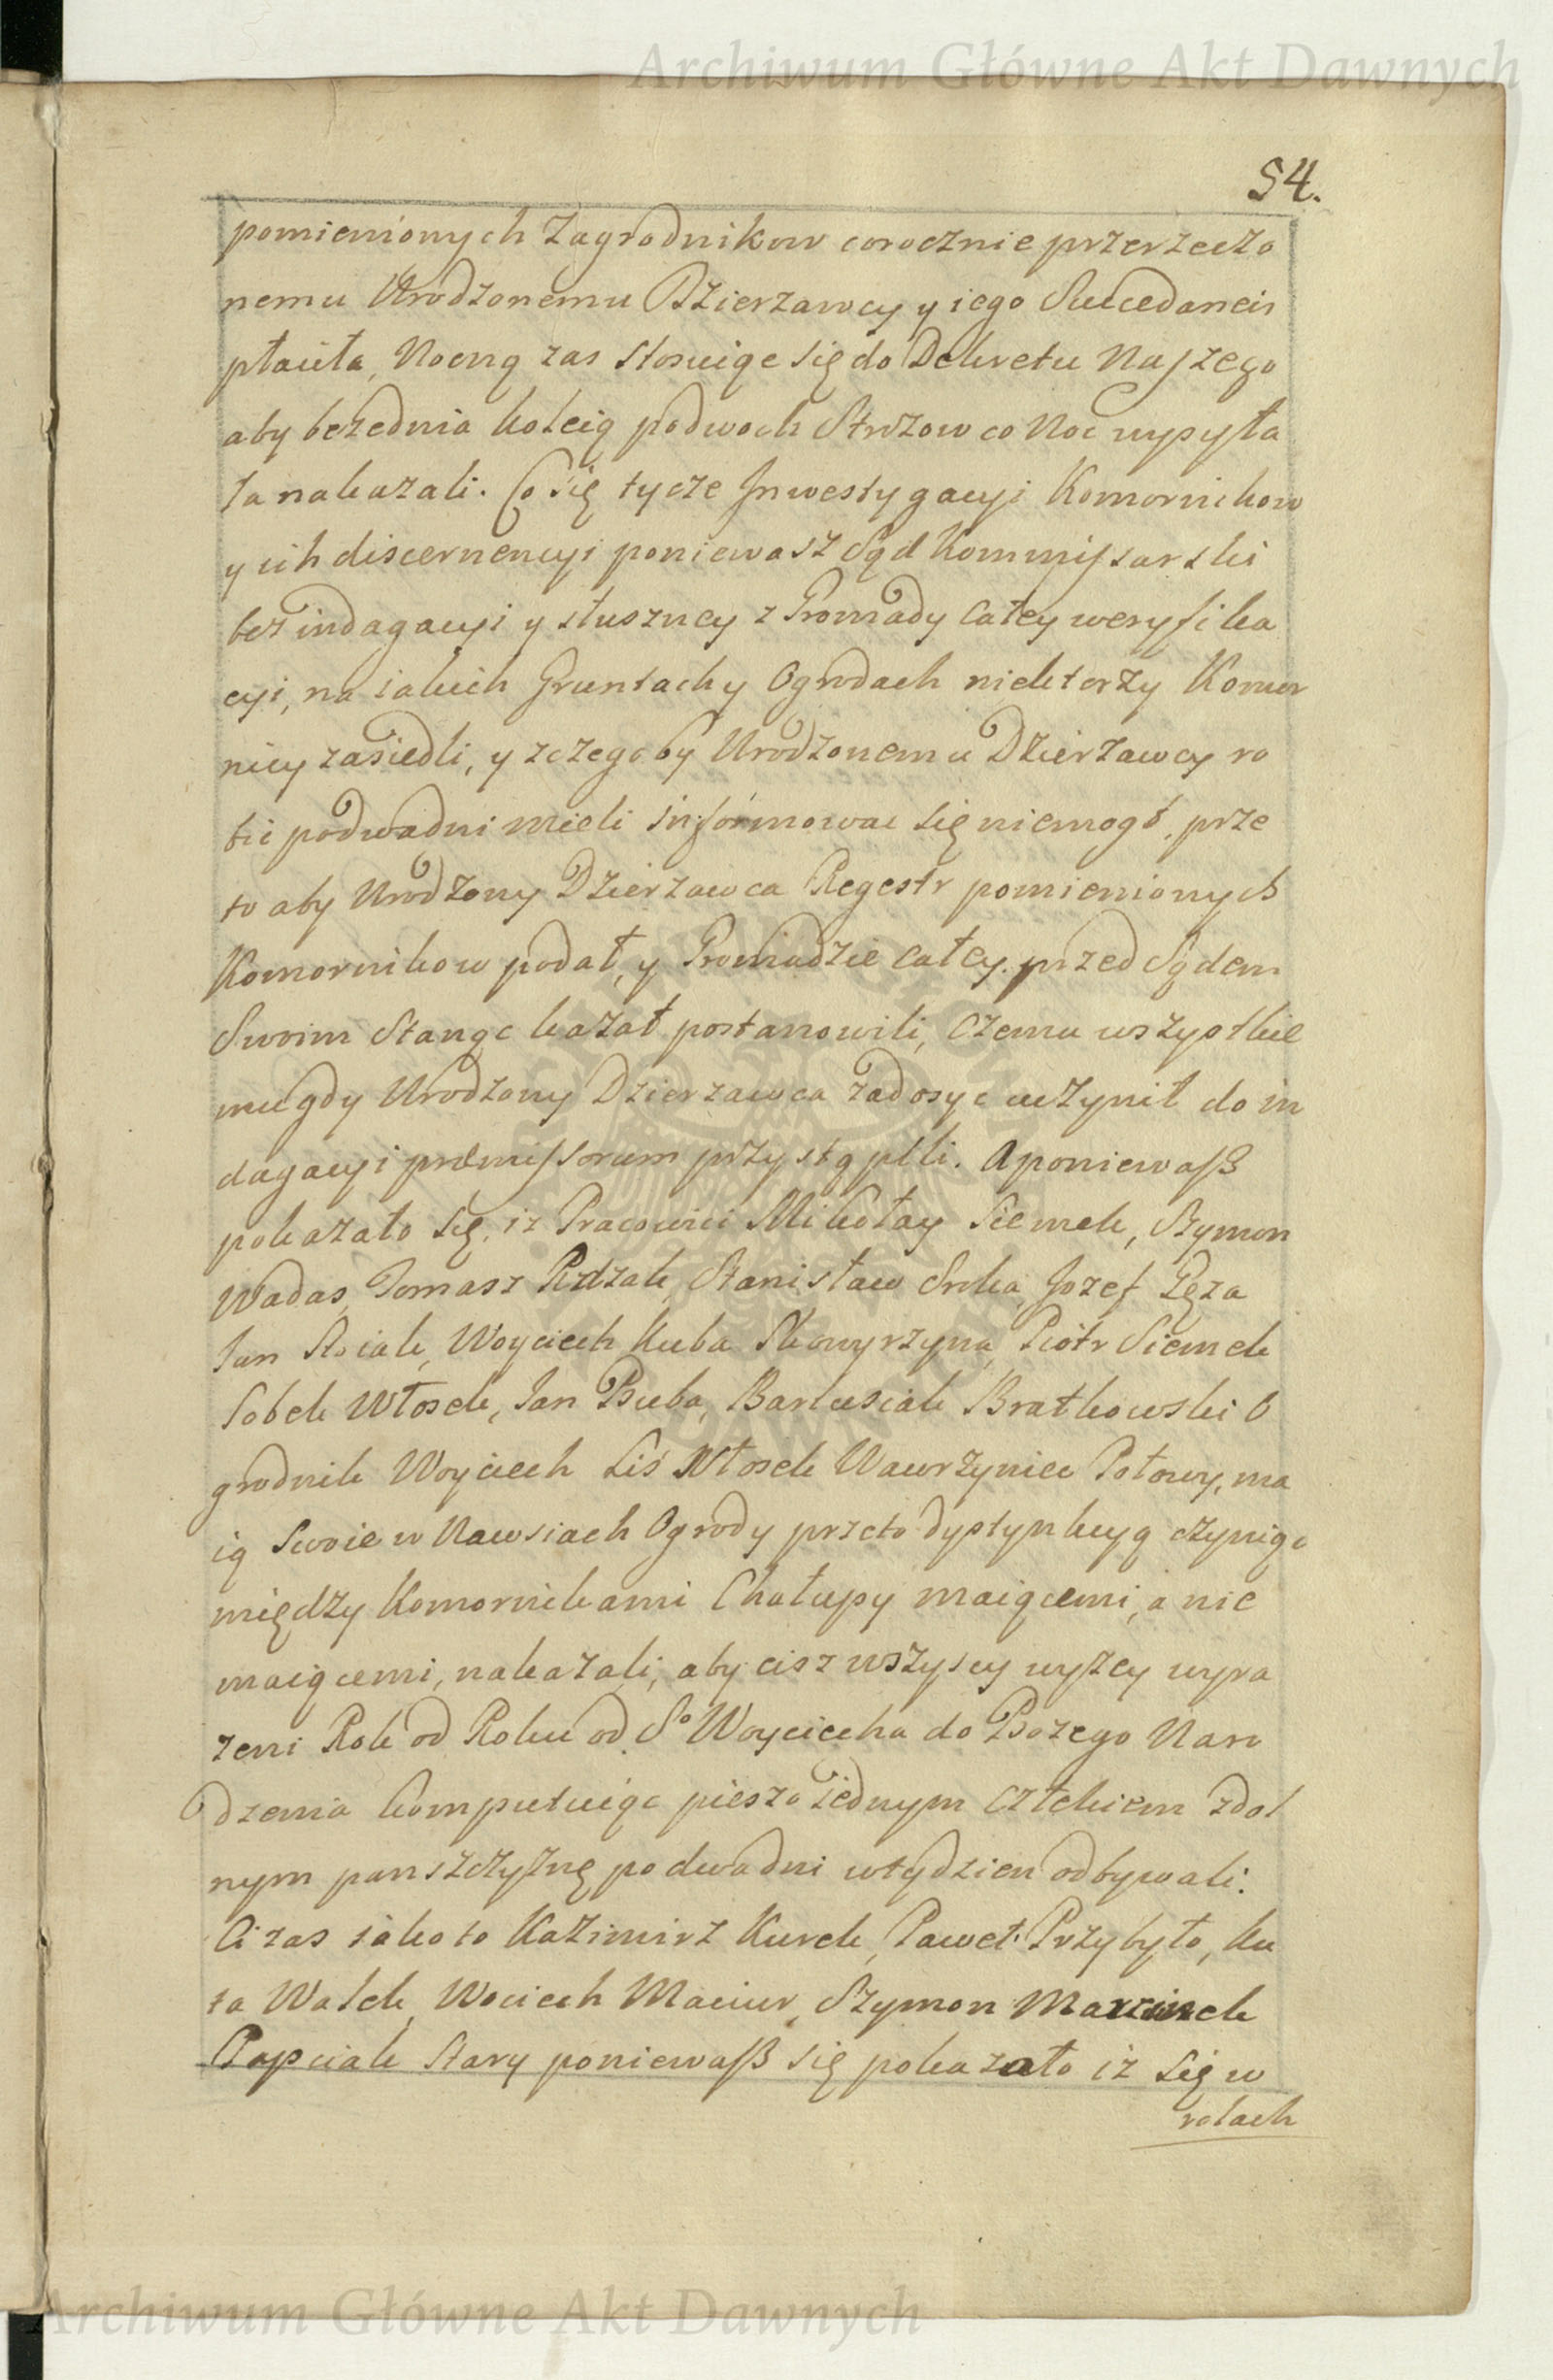 Archiwum Główne Akt Dawnych
54.
pomienionych Zagrodnikow corocznie przerzeczo
nemu Urodzonemu Dzierzawcy y iego Succedaneis
płaciła, Nocną zas stosuiąc się do Dekretu Naszego
aby bezednia koleią podwoch Strozow co Noc wysyła
ła nakazali. Co się tycze Jnwestygacyi Komornikow
y ich discernencyi poniewasz Sąd Kommissarski
bez indagacyi y słuszney z Gromady całey weryfika
cyi, na iakich Gruntach y Ogrodach niektorzy Komor
nicy zasiedli, y zczegoby Urodzonemu Dzierzawcy ro
bić podwadni mieli informowac się niemogł, prze
to aby Urodzony Dzierzawca Regestr pomienionych
Komornikow podał, y Gromadzie całey przed Sądem
Swoim Stanąc kazał postanowili, czemu wszystkie
mu gdy Urodzony Dzierzawca zadosyc uczynił do in
dagacyi præmissorum przystąpili. A poniewasz
pokazało się, iz Pracowici Mikołay Siemek, Szymon
Wadas, Tomasz Rdzak, Stanisław Sroka, Jozef Pęza
Jan Sciak, Woyciech Kuba Skowyrzyna, Piotr Siemek
Sobek Włosek, Jan Buba, Bartusiak Bratkowski O
grodnik Woyciech Liś Włosek Wawrzyniec Połowy, ma
ią Swoie w Nawsiach Ogrody przeto dystynkcyą czyniąc
między Komornikami Chałupy maiącemi, a nie
maiącemi, nakazali, aby cisz wszyscy wyzey wyra
zeni Rok od Roku od So Woyciecha do Bozego Naro
dzenia komputuiąc pieszo iednym człekiem zdol
nym panszczyznę podwadni wtydzien odbywali.
Ci zas iako to Kazimirz Kurek, Paweł Przybyło, Ku
ta Walek, Wociech Maciur, Szymon Marcinek
Papciak Stary poniewasz się pokazało iz się w
rolach
Archiwum Główne Akt Dawnych